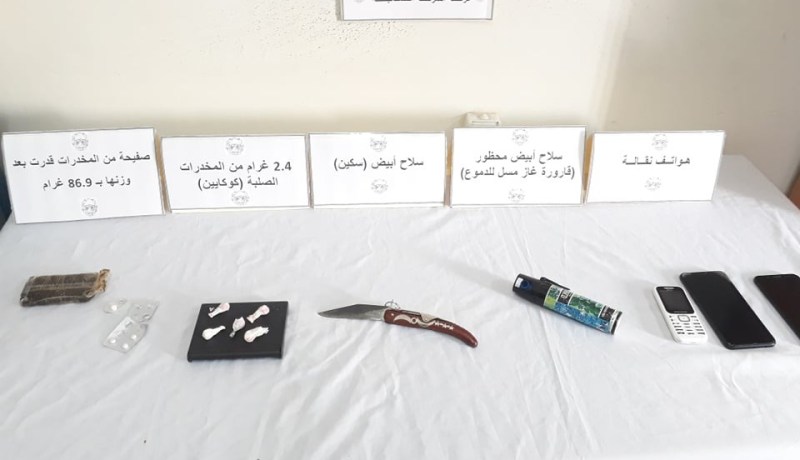 صفيحة من المخدرات قدرت بعد
وزنها بـ 86.9 غرام
2.4 غرام من المخدرات
الصلبة (كوكايين)
سلاح أبيض (سكين)
سلاح أبيض محظور
(قارورة غاز مسل للدموع)
هواتف نقالة